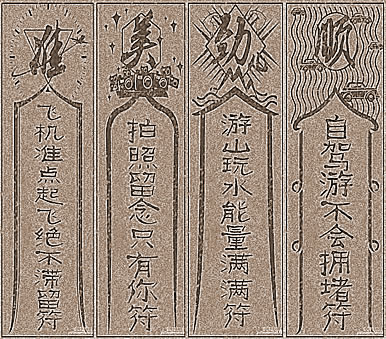 准
飞机准点起飞绝不滞留符
美
拍照留念只有你符
劲
游山玩水能量满满符
顺
自驾游不会拥堵符